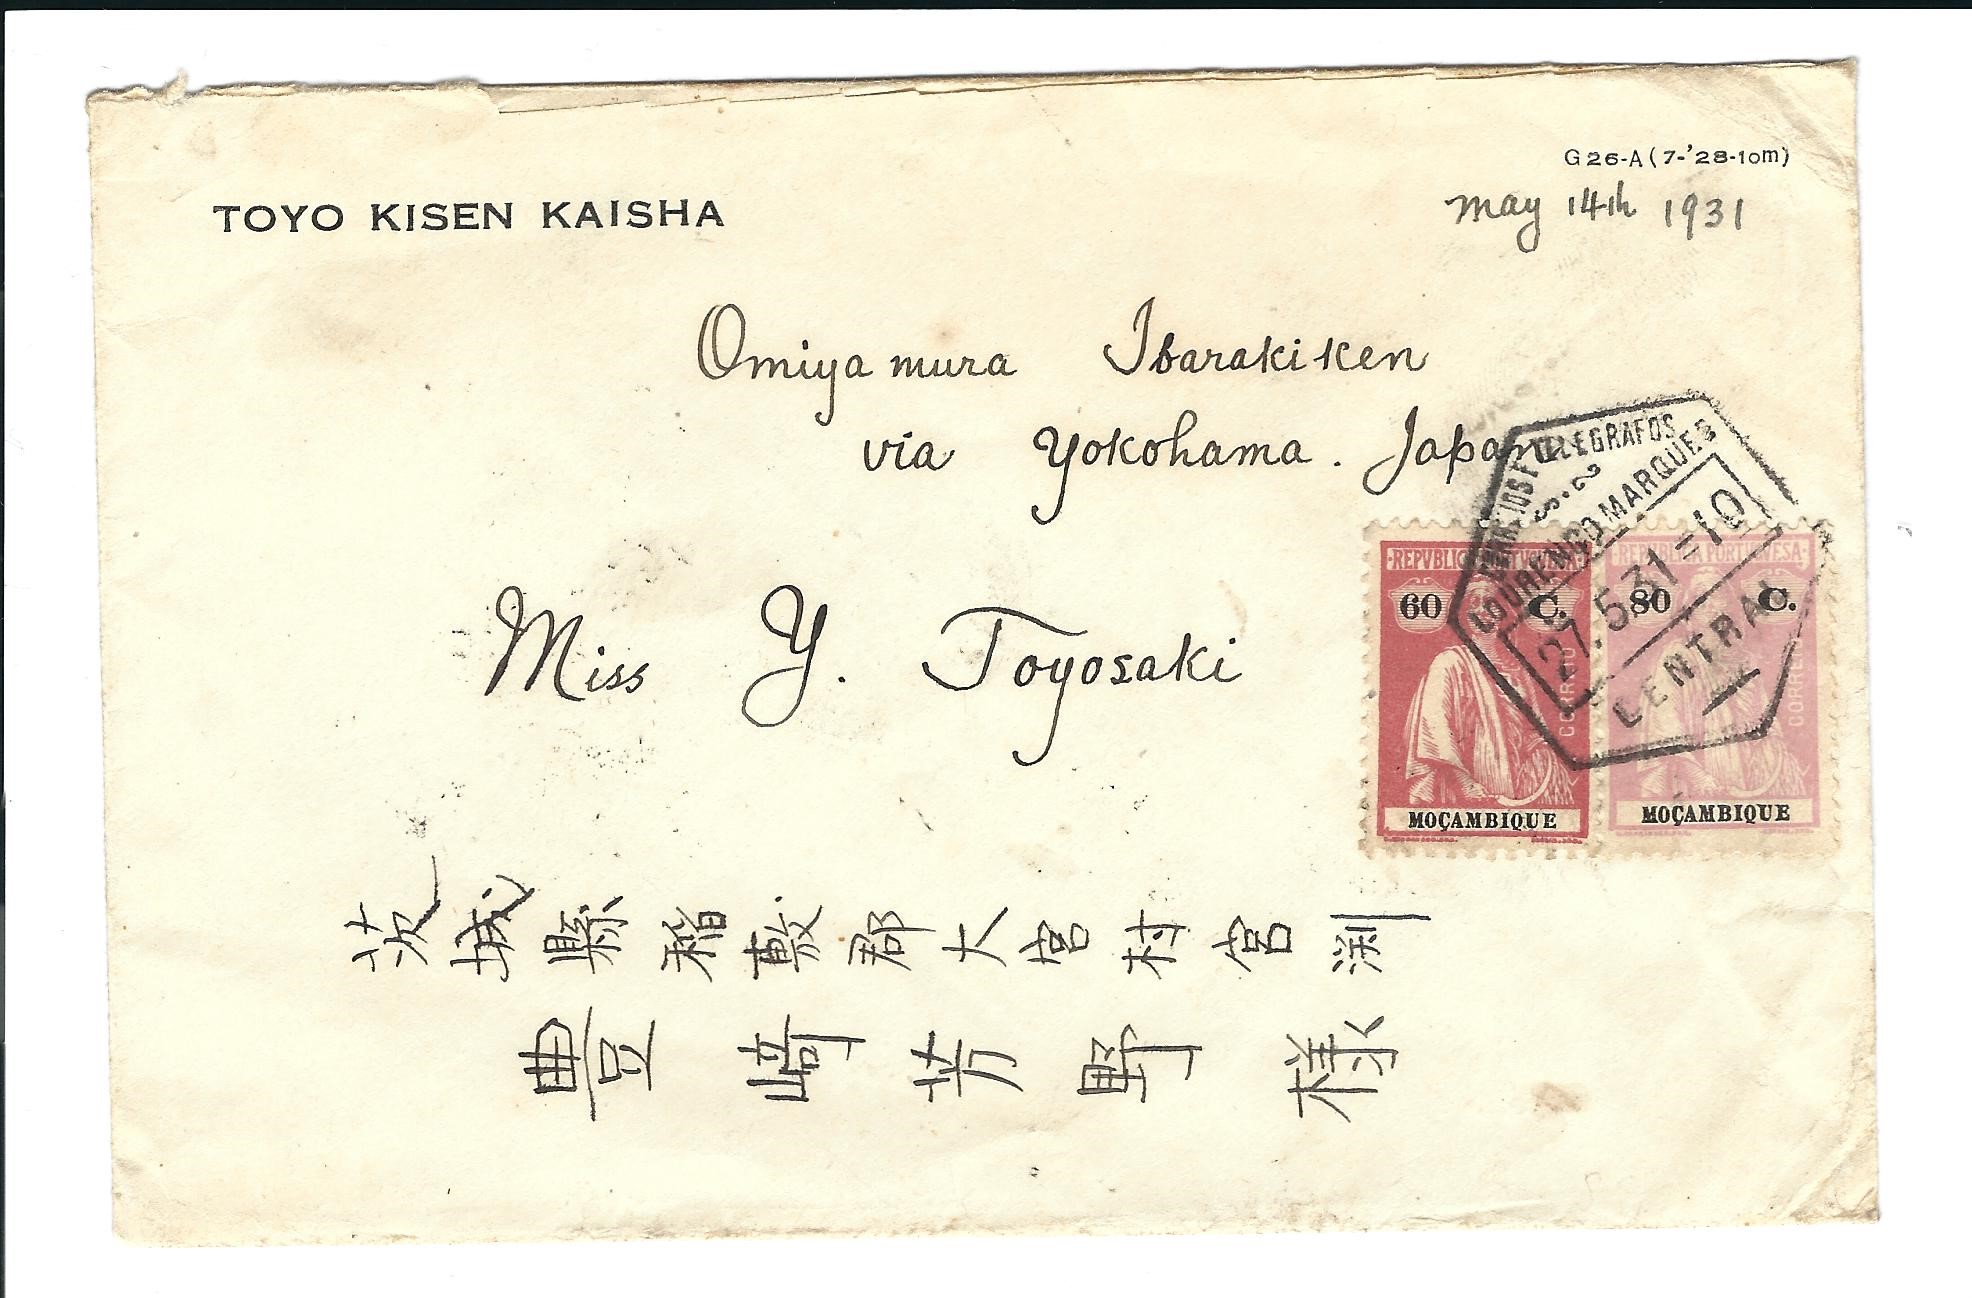 G26-A (7-'28-10m)
TOYO KISEN KAISHA
May 14th 1931
Omiya mura Ibaraki ken
via Yokohama. Japan
Miss Y. Toyosaki
CORREIOS E TELEGRAFOS
S. 2
LOURENÇO MARQUES
27. 5. 31 = 10
CENTRAL
REPVBLICA PORTVGVESA
60 C.
CORREIO
MOÇAMBIQUE
REPVBLICA PORTVGVESA
80 C.
CORREIO
MOÇAMBIQUE
茨城縣稲敷郡大宮村宮渕
豊崎芳野様